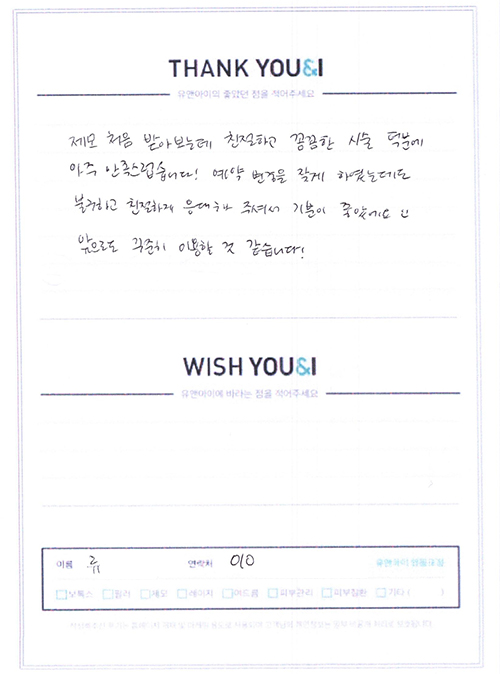 THANK YOU&I
유앤아이의 좋았던 점을 적어주세요
제모 처음 받아보는데 친절하고 꼼꼼한 시술 덕분에
아주 만족스럽습니다! 예약 변경을 잦게 하였는데도
불구하고 친절하게 응대해 주셔서 기분이 좋았어요
앞으로도 꾸준히 이용할 것 같습니다!
WISH YOU&I
유앤아이에 바라는 점을 적어주세요
이름 류 연락처 010
보톡스 필러 제모 레이저 여드름 피부관리 피부질환 기타 ( )